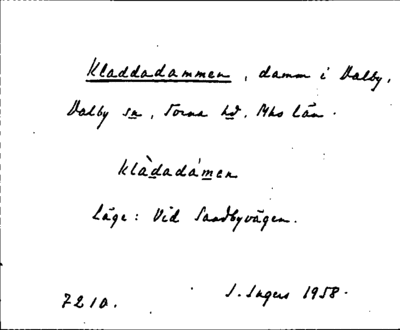 Kladdadammen, damm i Dalby,
Dalby sn, Torna hd, Mhs län.
klàdadámen
Läge: Vid Sandbyvägen.
I. Ingers 1958.
7210.